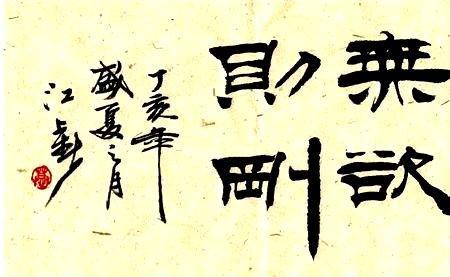 無欲
則剛
丁亥年
盛夏之月
江